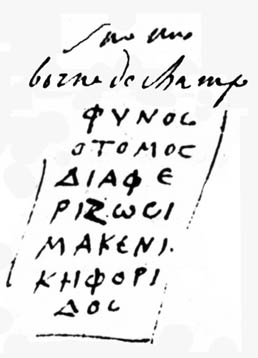 Sur une
borne de champ
ΦΥΝΟC
ΟΤΟΜΟC
ΔΙΑΦΕ
ΡΙΖΩCΙ
ΜΑΚΕΝΙ.
ΚΗΦΟΡΙ
ΔΟC